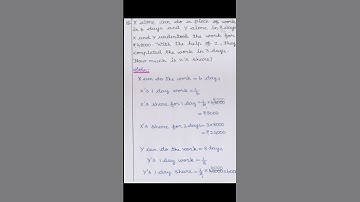 X alone can do a piece of work
in 6 days and Y alone in 8 days.
X and Y undertook the work for
₹48000. With the help of Z, they
completed the work in 3 days.
How much is Z's share?
Soln:
X can do the work = 6 days
X's 1 day work = 1/6
X's share for 1 day = 1/6 × 48000
= ₹8000
X's share for 3 days = 3×8000
= ₹24000
Y can do the work = 8 days
Y's 1 day work = 1/8
Y's 1 day share = 1/8 ×